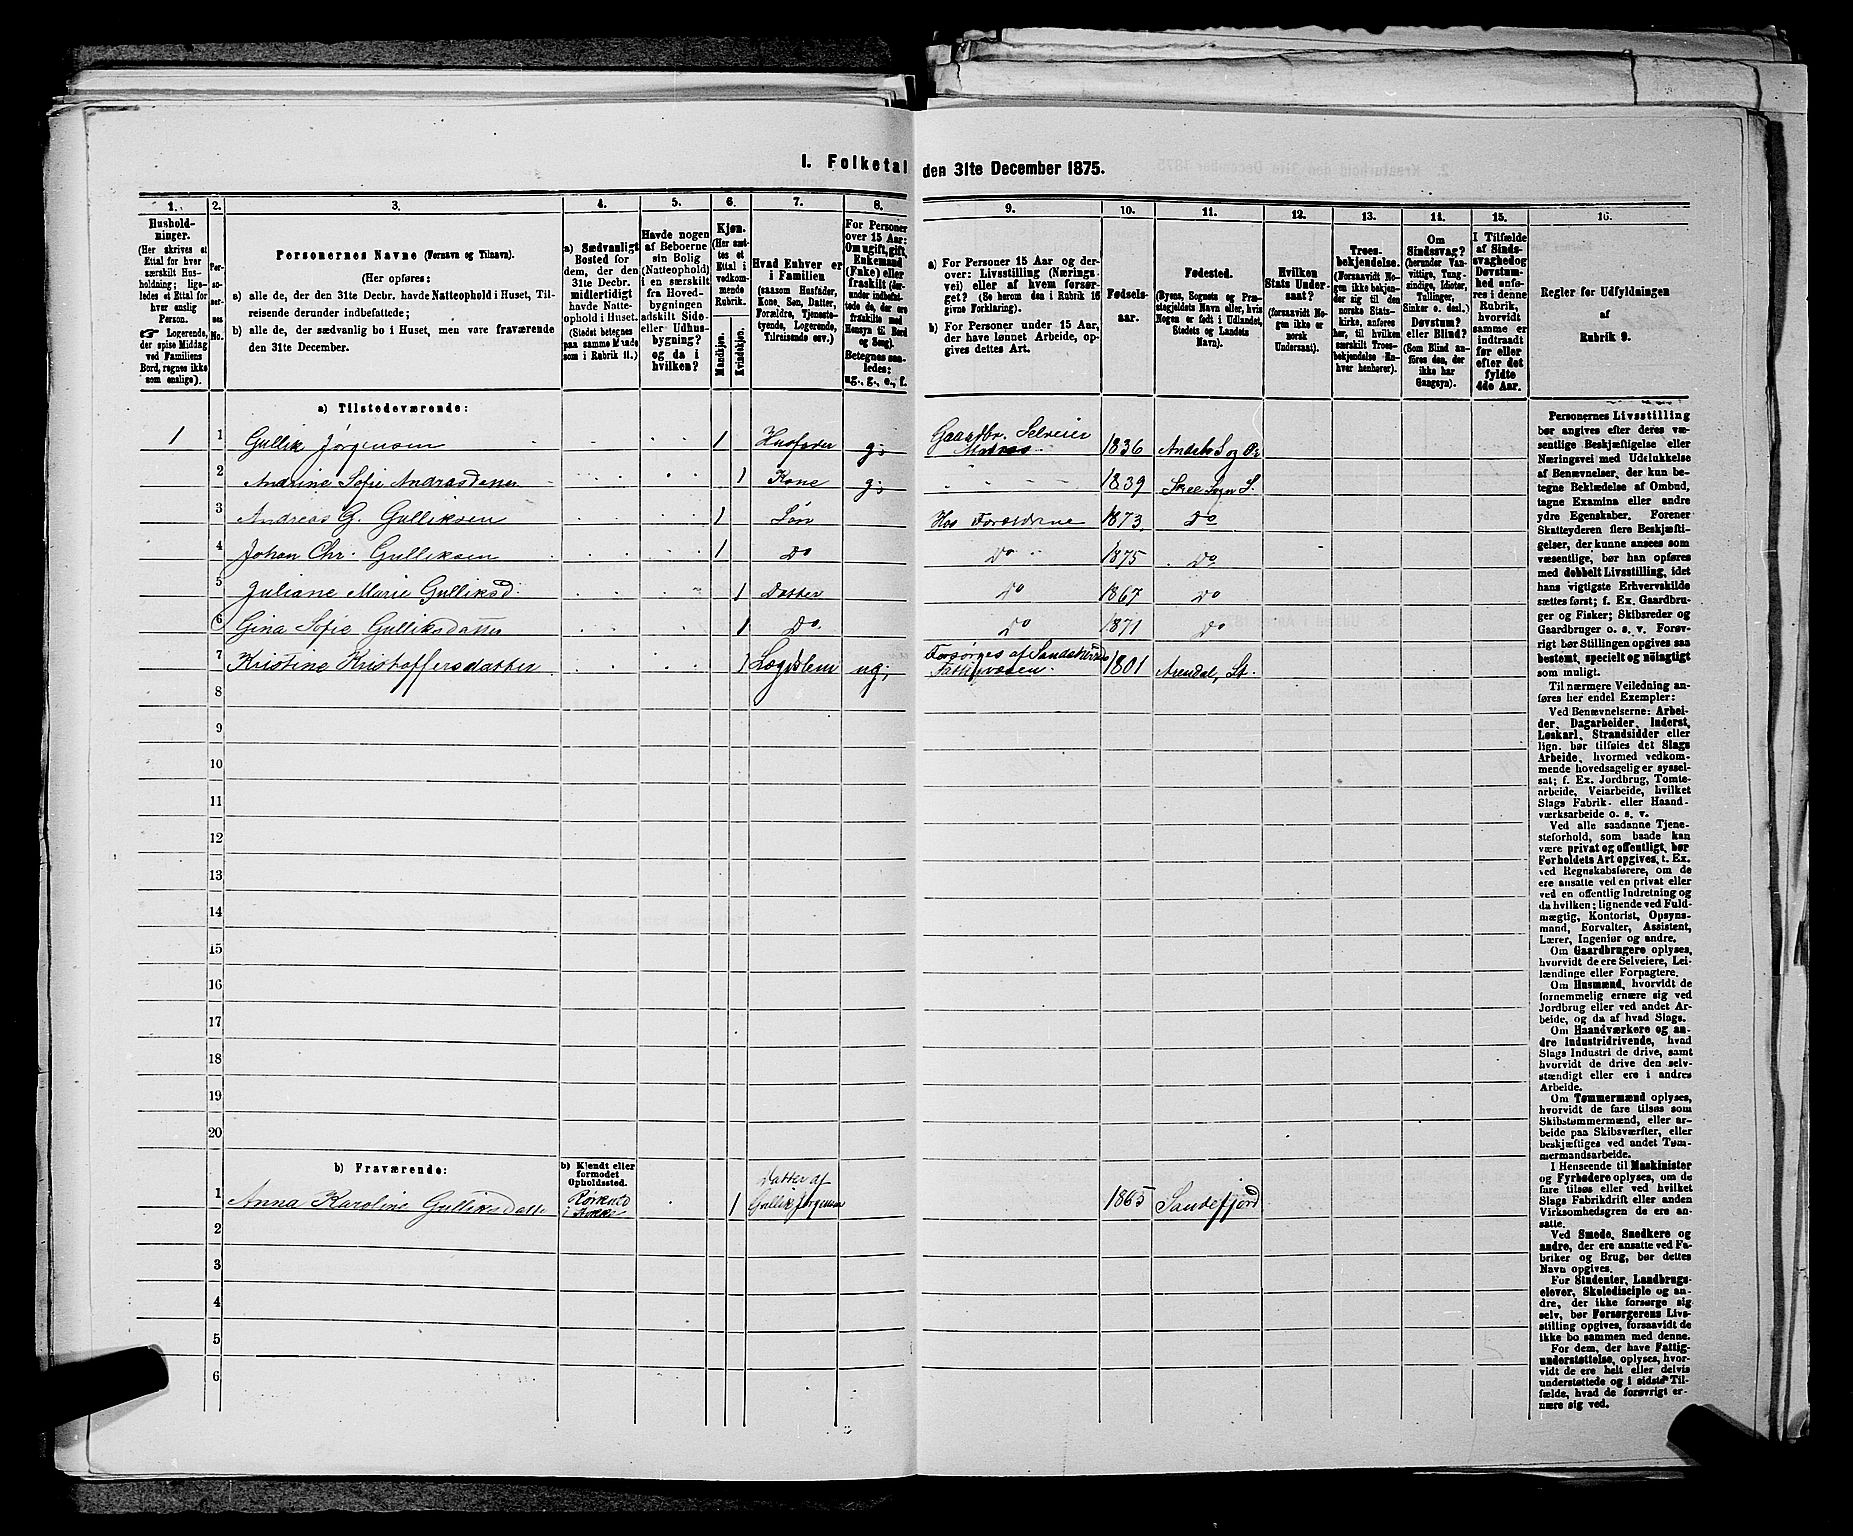 I. Folketal den 31te December 1875.
1. 2. 3. 4. 5. 6. 7. 8. 9. 10. 11. 12. 13. 14. 15. 16.
Husholdninger.
(Her skrives et
Ettal for hver
særskilt Hus-
holdning; lige-
ledes et Ettal for
hver enslig
Person.
Logerende,
der spise Middag
ved Familiens
Bord, regnes ikke
som enslige).
Personernes No.
Personernes Navne (Fornavn og Tilnavn).
(Her opføres:
a) alle de, der den 31te Decbr. havde Natteophold i Huset, Til-
reisende derunder indbefattede;
b) alle de, der sædvanlig bo i Huset, men vare fraværende
den 31te December.
a) Sædvanligt
Bosted for
dem, der den
31te Decbr.
midlertidigt
havde Natte-
ophold i Huset.
(Stedet betegnes
paa samme Maade
som i Rubrik 11.)
Havde nogen
af Beboerne
sin Bolig
(Natteophold)
i en særskilt
fra Hoved-
bygningen
adskilt Side-
eller Udhus-
bygning?
og da i
hvilken?
Kjøn.
(Her sæt-
tes et
Ettal i
vedkom-
mende
Rubrik.
Mandkjøn.
Kvindekjøn.
Hvad Enhver er
i Familien
(saasom Husfader,
Kone, Søn, Datter,
Forældre, Tjeneste-
tyende, Logerende,
Tilreisende osv.)
For Personer
over 15 Aar:
Om ugift, gift,
Enkemand
(Enke) eller
fraskilt (der-
under indbefat-
tede de, der ere
fraskilte med
Hensyn til Bord
og Seng).
Betegnes saa-
ledes:
ug., g., e., f.
a) For Personer 15 Aar og der-
over: Livsstilling (Nærings-
vei) eller af hvem forsør-
get? (Se herom den i Rubrik 16
givne Forklaring).
b) For Personer under 15 Aar,
der have lønnet Arbeide, op-
gives dettes Art.
Fødsels-
aar.
Fødested.
(Byens, Sognets og Præ-
stegjeldets Navn eller, hvis
Nogen er født i Udlandet,
Stedets og Landets
Navn).
Hvilken
Stats Under-
saat?
(forsaavidt No-
gen ikke er
norsk
Undersaat).
Troes-
bekjendelse.
(Forsaavidt No-
gen ikke bekjen-
der sig til den
norske Stats-
kirke, anføres
her, til hvilken
særskilt Troes-
bekjendelse En-
hver henhører).
Om
Sindssvag?
(herunder Van-
vittige, Tung-
sindige, Idioter,
Tullinger,
Sinker o. desl.)
Døvstum?
eller Blind?
(Som Blind an-
føres den, der
ikke har
Gangsyn).
I Tilfælde
af Sinds-
svaghed og
Døvstum-
hed anfø-
res i denne
Rubrik,
hvorvidt
samme er
indtraadt
før eller
efter det
fyldte
4de Aar.
Regler for Udfyldningen
af
Rubrik 9.
a) Tilstedeværende:
1 1 Gullik Jørgensen 1 Husfader g; Gaardbr. Selveier 1836 Andebu S og Pr
2 Andrine Sofie Andrasdatter 1 Kone g; 1839 Skee Sogn S.
3 Andreas G. Gulliksen 1 Søn Hos Forældrene 1873 Do
4 Johan Chr. Gulliksen 1 Do Do 1875 Do
5 Juliane Marie Gulliksd: 1 Datter Do 1867 Do
6 Gina Sofie Gulliksdatter 1 Do. Do 1871 Do
7 Kristine Kristoffersdatter 1 Lægdslem ug; Forsørges af Sandeherred Fattigvæsen. 1801 Arendal, St.
8
9
10
11
12
13
14
15
16
17
18
19
20
b) Fraværende:
b) Kjendt eller
formodet
Opholdssted.
1 Anna Karoline Gulliksdatter i 1 Datter af Gullik Jørgensen 1865 Sandefjord
2
3
4
5
6
Personernes Livsstilling
bør angives efter deres væ-
sentlige Beskjæftigelse eller
Næringsvei med Udelukkelse
af Benævnelser, der kun be-
tegne Beklædelse af Ombud,
tagne Examina eller andre
ydre Egenskaber. Forener
Skatteyderen flere Beskjæfti-
gelser, der kunne ansees som
væsentlige, bør han opføres
med dobbelt Livsstilling, idet
hans vigtigste Erhvervskilde
sættes først; f. Ex. Gaardbru-
ger og Fisker; Skibsreder og
Gaardbruger o. s. v. Forøv-
rigt bør Stillingen opgives saa
bestemt, specielt og nøiagtigt
som muligt.
Til nærmere Veiledning an-
føres her endel Exempler:
Ved Benævnelserne: Arbei-
der, Dagarbeider, Inderst,
Løskarl, Strandsidder eller
lign. bør tilføies det Slags
Arbeide, hvormed vedkom-
mende hovedsagelig er syssel-
sat; f. Ex. Jordbrug, Tomte-
arbeide, Veiarbeide, hvilket
Slags Fabrik- eller Haand-
værksarbeide o. s. v.
Ved alle saadanne Tjene-
steforhold, som baade kan
være privat og offentligt, bør
Forholdets Art opgives, t. Ex.
ved Regnskabsførere, om de
ere ansatte ved en privat eller
ved en offentlig Indretning og
da hvilken; lignende ved Fuld-
mægtig, Kontorist, Opsyns-
mand, Forvalter, Assistent,
Lærer, Ingeniør og andre.
Om Gaardbrugere oplyses,
hvorvidt de ere Selveiere, Lei-
lændinge eller Forpagtere.
Om Husmænd, hvorvidt de
fornemmelig ernære sig ved
Jordbrug eller ved andet Ar-
beide, og da af hvad Slags.
Om Haandværkere og an-
dre Industridrivende, hvad
Slags Industri de drive, samt
hvorvidt de drive den selv-
stændigt eller ere i andres
Arbeide.
Om Tømmermænd oplyses,
hvorvidt de fare tilsøs som
Skibstømmermænd, eller ar-
beide paa Skibsværfter, eller
beskjæftiges ved andet Tøm-
mermandsarbeide.
I Henseende til Maskinister
og Fyrbødere oplyses, om de
fare tilsøs eller ved hvilket
Slags Fabrikdrift eller anden
Virksomhedsgren de ere an-
satte.
Ved Smede, Snedkere og
andre, der ere ansatte ved Fa-
briker og Brug, bør dettes
Navn opgives.
For Studenter, Landbrugs-
elever, Skoledisciple og an-
dre, der ikke forsørge sig
selv, bør Forsørgerens Livs-
stilling opgives, forsaavidt de
ikke bo sammen med denne.
For dem, der have Fattig-
understøttelse, oplyses, hvor-
vidt de ere helt eller delvis
understøttede og i sidste Til-
fælde, hvad de forøvrigt er-
nære sig ved.